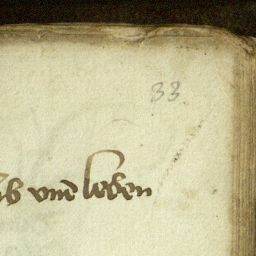 33
vnd leben